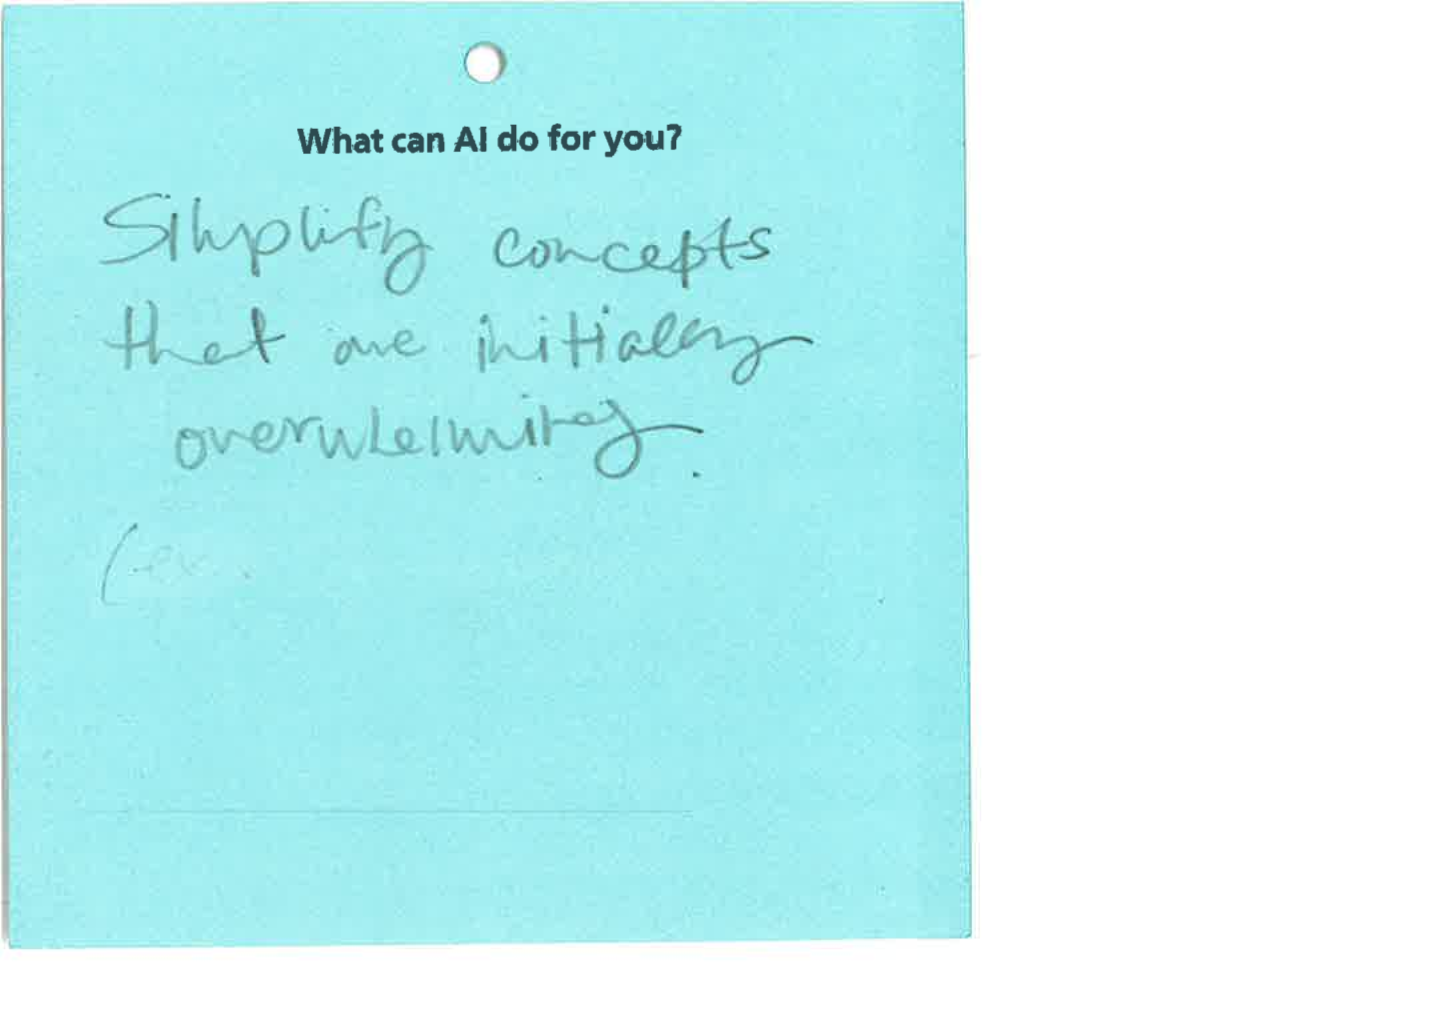 What can AI do for you?
Simplify concepts
that are initially
overwhelming.
(ex.